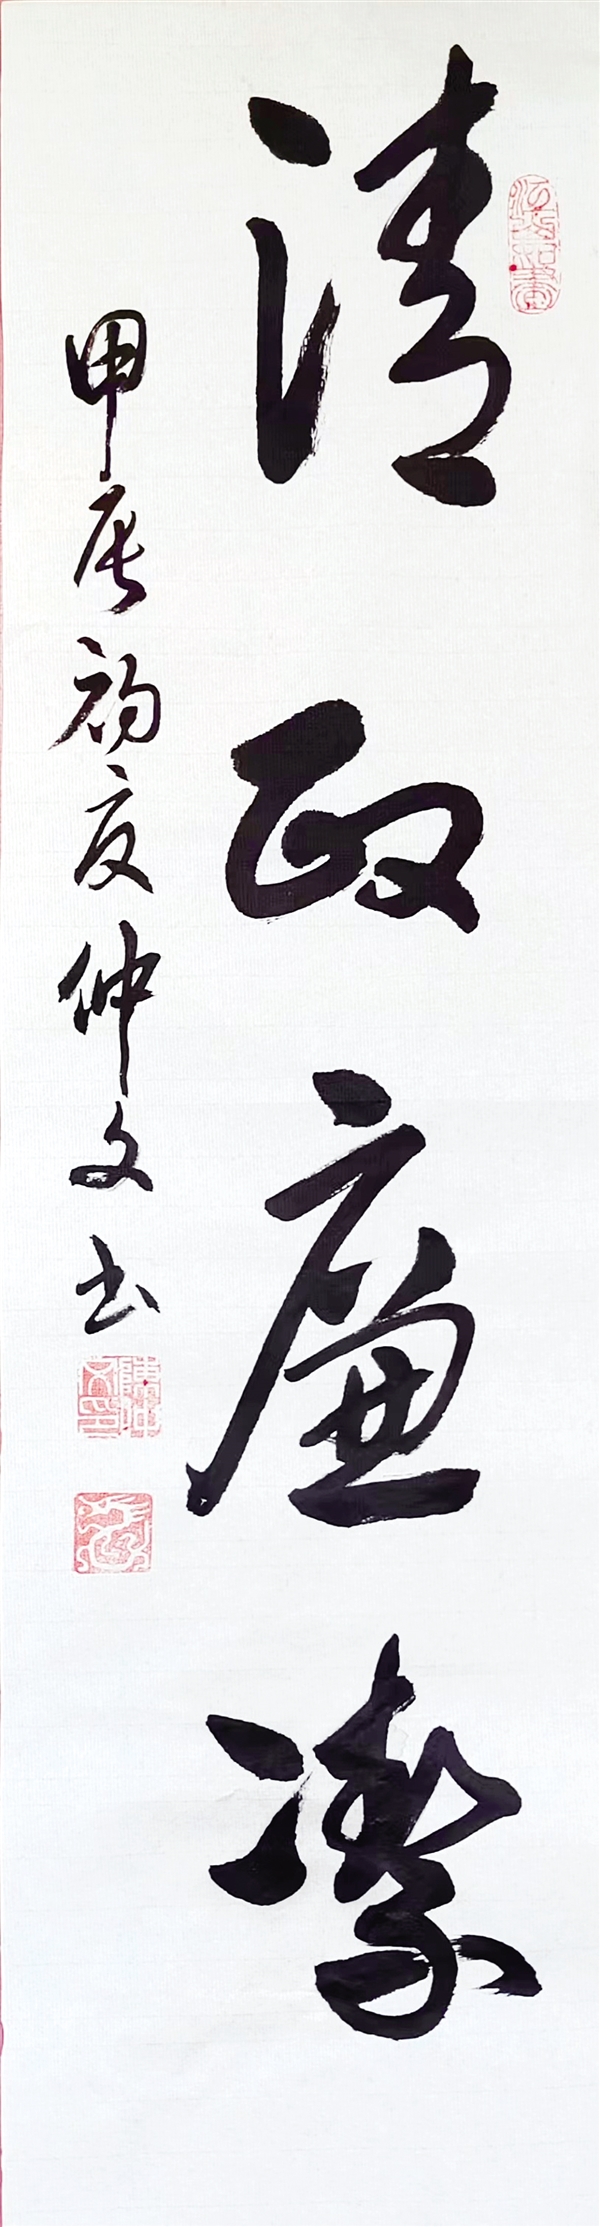 清政廉潔
甲辰初夏仲文书